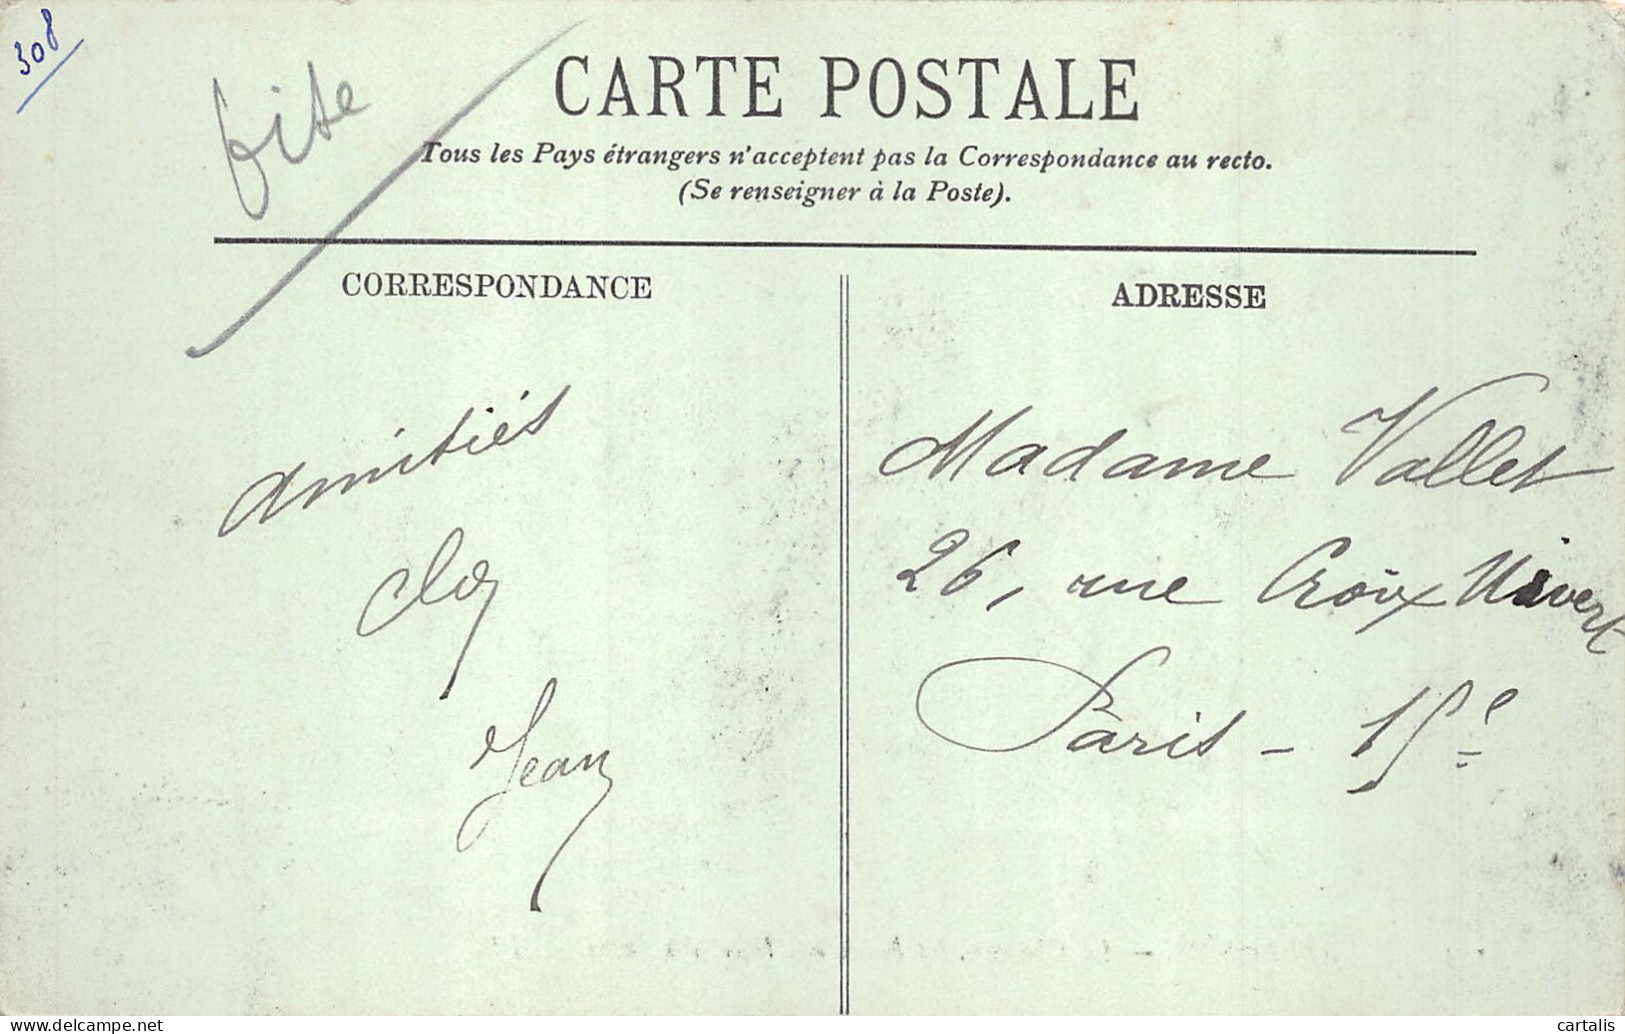 308
CARTE POSTALE
Tous les Pays étrangers n'acceptent pas la Correspondance au recto.
(Se renseigner à la Poste).
CORRESPONDANCE
ADRESSE
Amitiés
Jean
Madame Vallet
26, rue Croix Nivert
Paris - 15e
delcampe.net
cartalis